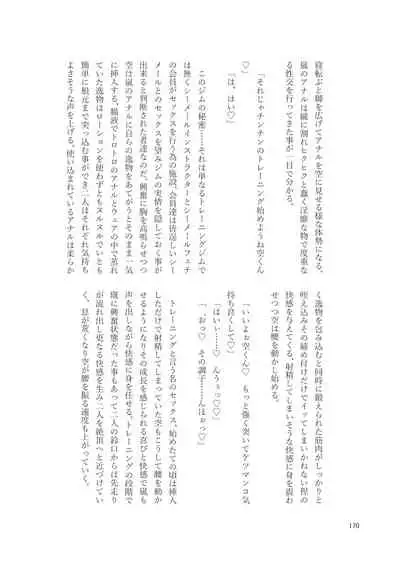 寝転ぶと脚を広げてアナルを空に見せる様な体勢になる。
嵐のアナルは縦に割れヒクヒクと蠢く淫靡な物で度重な
る性交を行ってきた事が一目で分かる。
「それじゃチンチンのトレーニング始めようね空くん
♡」
「は、はい♡」
このジムの秘密……それは単なるトレーニングジムで
は無くシーメールインストラクターとシーメールフェチ
の会員がセックスを行う為の施設。会員達は皆逞しいシー
メールとのセックスを望みジムの実情を隠しておく事が
出来ると判断された者達なのだ。興奮に胸を高鳴らせつつ
空は嵐のアナルに自らの逸物をあてがうとそのまま一気
に挿入する。腸液でトロトロのアナルとウェアの中で蒸れ
ていた逸物はローションを使わずともヌルヌルでいとも
簡単に根元まで突っ込む事ができ二人はそれぞれ気持ち
よさそうな声を上げる。使い込まれているアナルは柔らか
く逸物を包み込むと同時に鍛えられた筋肉がしっかりと
咥え込みその締め付けだけでイッてしまいかねない程の
快感を与えてくる。射精してしまいそうな快感に身を震わ
せつつ空は腰を動かし始める。
「いいよぉ空くん♡ もっと強く突いてケツマンコ気
持ち良くして♡」
「はいぃ……♡ んうぅっ♡♡」
「、おっ♡ その調子……んほぉっ♡」
トレーニングと言う名のセックス。始めたての頃は挿入
しただけで射精してしまっていた空もこうして腰を動か
せるようになりその成長を感じられる喜びと快感で嵐も
声を出しながら快感に身を任せる。トレーニングの段階で
既に興奮状態だった事もあって二人の鈴口からは先走り
が流れ出し更なる快感を生み二人を絶頂へと近づけてい
く。息が荒くなり空が腰を振る速度も上がっていく。
170